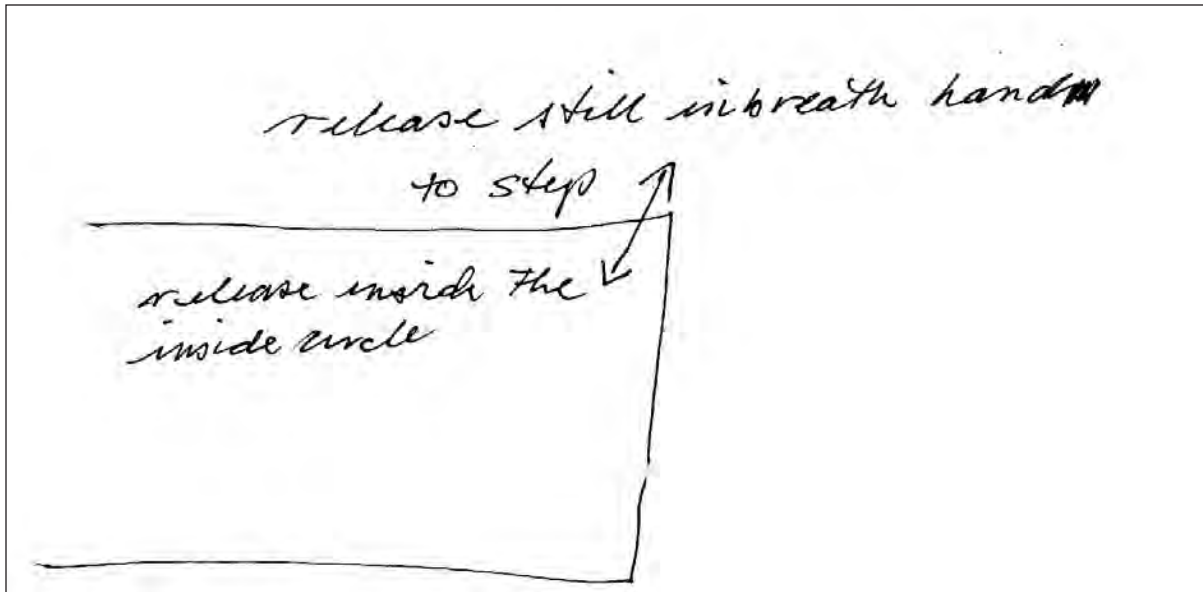 release still inbreath hand
to step
release inside the
inside circle